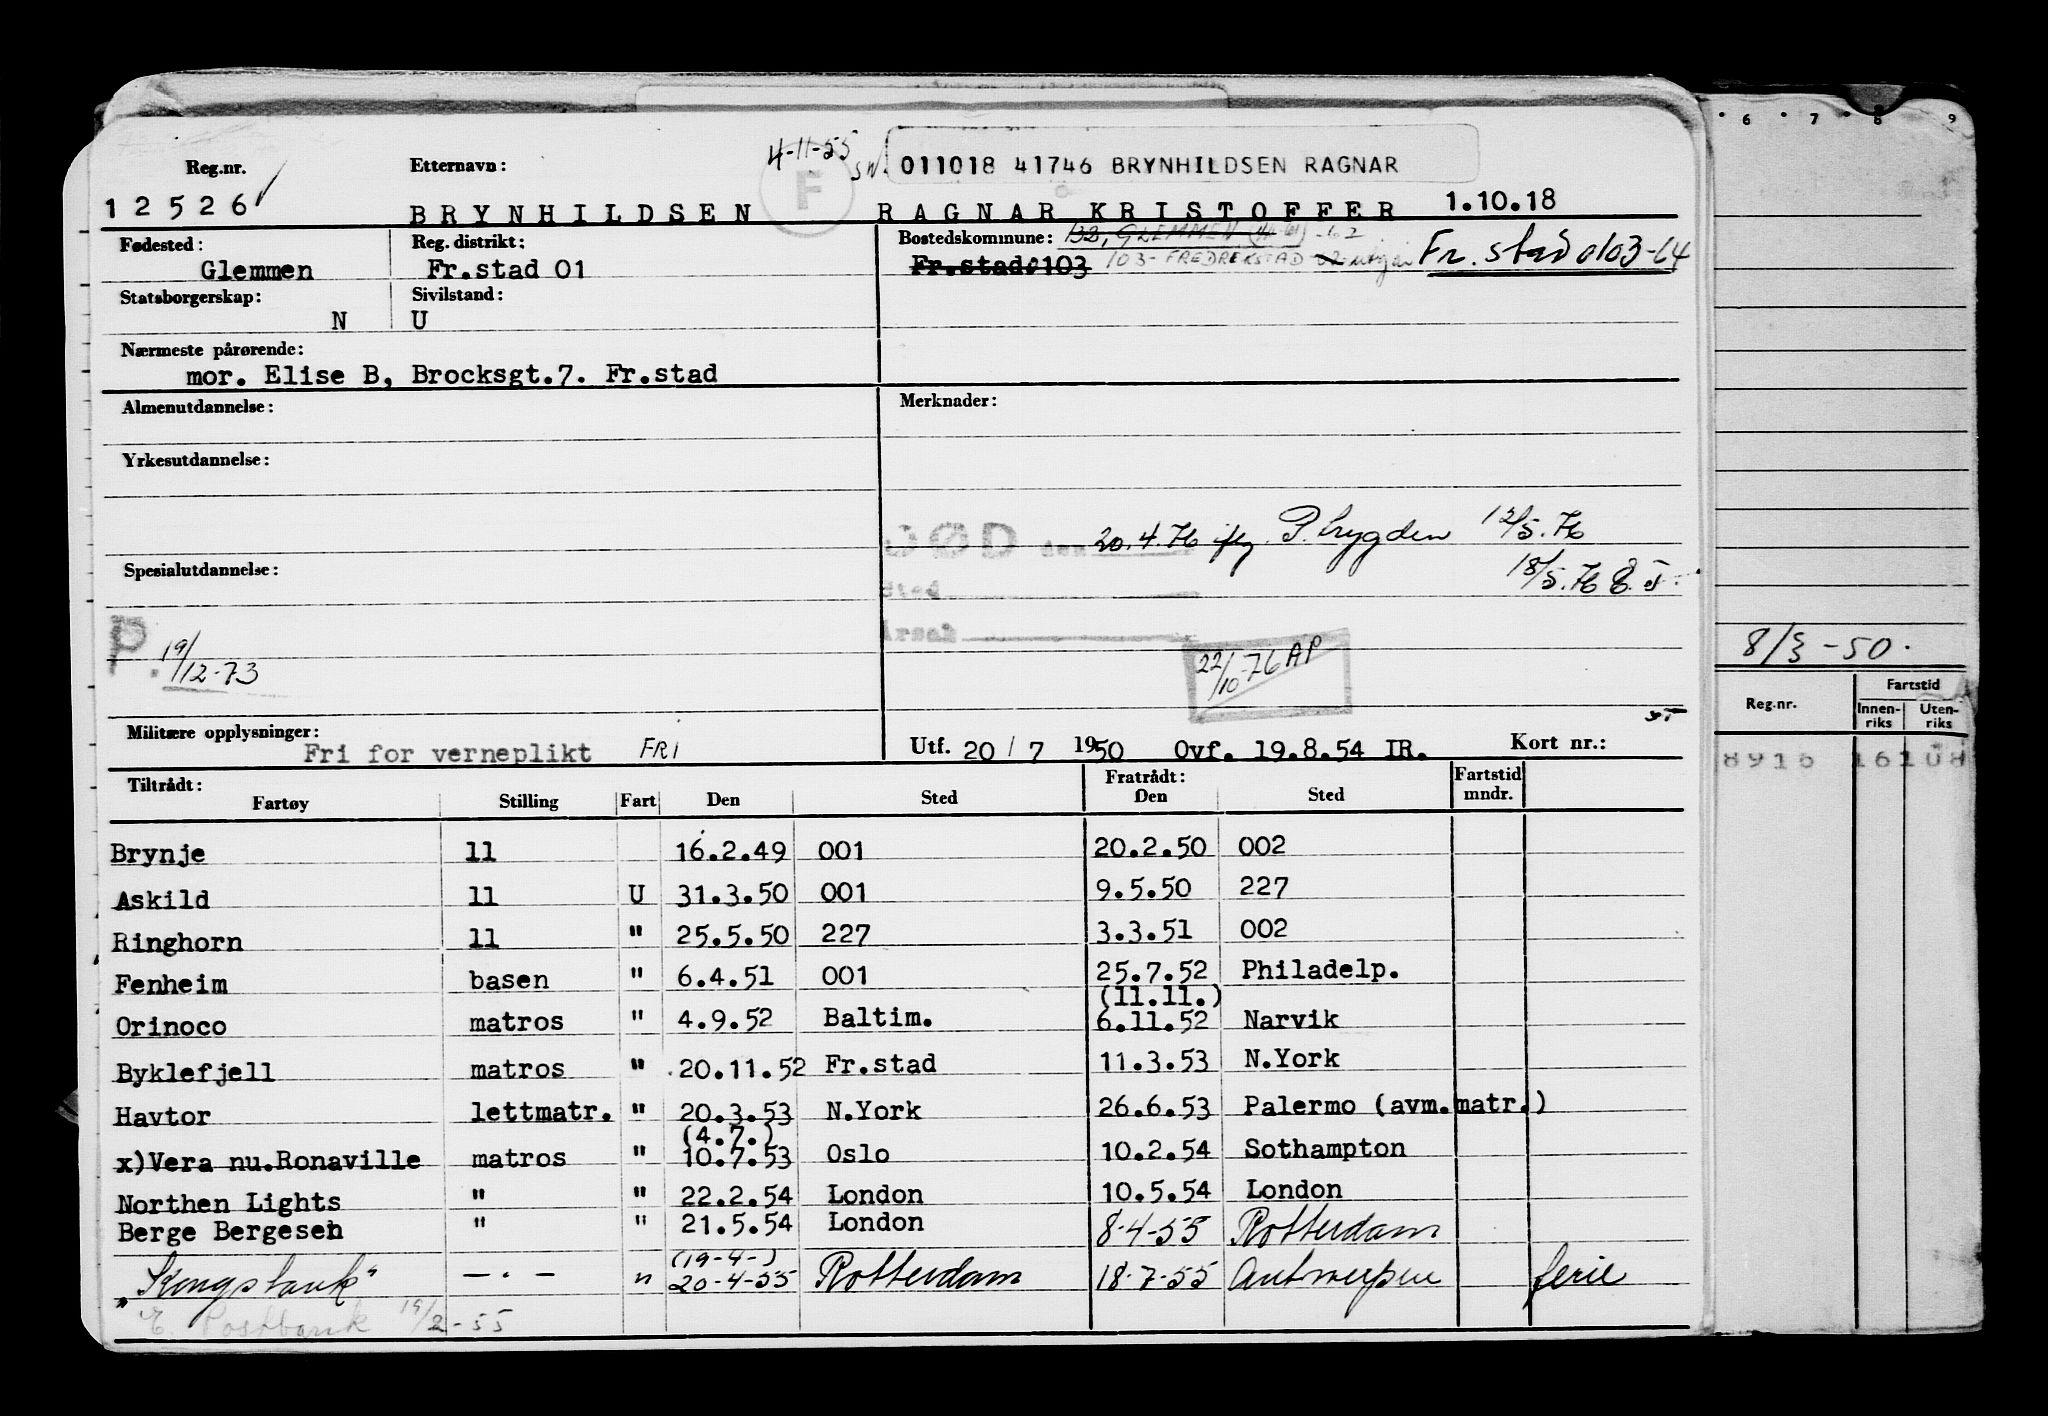 Reg.nr. Etternavn: 4-11-55 SN. 011018 41746 BRYNHILDSEN RAGNAR
F
12526 BRYNHILDSEN RAGNAR KRISTOFFER 1.10.18
Fødested: Reg. distrikt: Bostedskommune: 132, GLEMMEN
Glemmen Fr.stad 01 Fr.stad 0103 103-FREDRIKSTAD Fr.stad 0103-64
Statsborgerskap: Sivilstand:
N U
Nærmeste pårørende:
mor. Elise B, Brocksgt.7. Fr.stad
Almenutdannelse: Merknader:
Yrkesutdannelse:
DØD den 20.4.76 ifg. P.trygden 12/5.76
Spesialutdannelse: 18/5.76
Sted
Årsak
P. 19/12-73
22/10-76 AP
8/3-50.
Militære opplysninger:
Fri for verneplikt FRI Utf. 20/7 1950 Ovf. 19.8.54 IR. Kort nr.:
Tiltrådt: Fratrådt: Fartstid
Fartøy Stilling Fart Den Sted Den Sted mndr.
Brynje 11 16.2.49 001 20.2.50 002
Askild 11 U 31.3.50 001 9.5.50 227
Ringhorn 11 " 25.5.50 227 3.3.51 002
Fenheim basen " 6.4.51 001 25.7.52 Philadelp.
(11.11.)
Orinoco matros " 4.9.52 Baltim. 6.11.52 Narvik
Byklefjell matros " 20.11.52 Fr.stad 11.3.53 N.York
Havtor lettmatr. " 20.3.53 N.York 26.6.53 Palermo (avm.matr.)
(4.7.)
x)Vera nu.Ronaville matros " 10.7.53 Oslo 10.2.54 Sothampton
Northen Lights " " 22.2.54 London 10.5.54 London
Berge Bergesen " " 21.5.54 London 8-4-55 Rotterdam
(19-4-)
"Kongstank" — " — " 20-4-55 Rotterdam 18-7-55 Antwerpen ferie
Postbank 19/2-55
6 7 8 9
Reg.nr. Fartstid
Innenriks Utenriks
8916 16108